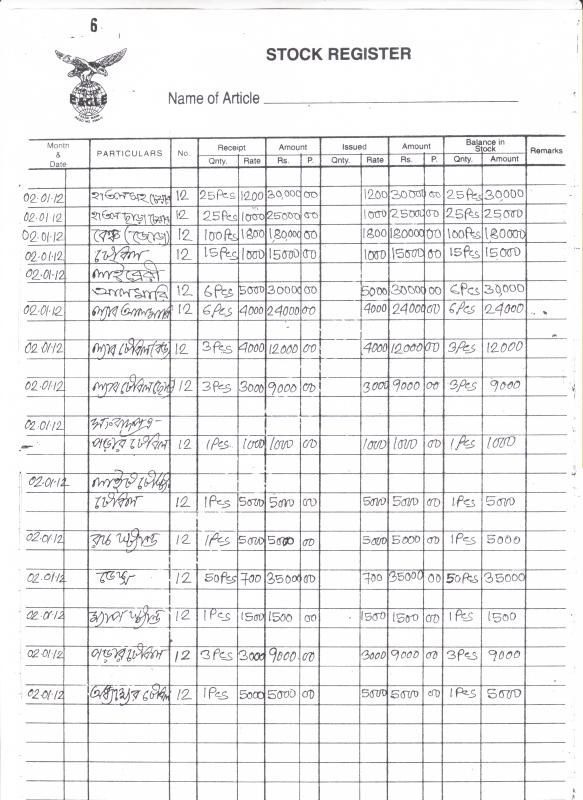 6
EAGLE
STOCK REGISTER
Name of Article
Month & Date PARTICULARS No. Receipt Amount Issued Amount Balance in Stock Remarks
Qnty. Rate Rs. P. Qnty. Rate Rs. P. Qnty. Amount
02.01.12 12 25Pcs 1200 30,000 00 1200 30000 00 25Pcs 30,000
02.01.12 12 25Pcs 1000 25000 00 1000 25000 00 25Pcs 25000
02.01.12 বেঞ্চ (জোড়া) 12 100Pcs 1800 1,80000 00 1800 180000 00 100Pcs 180000
02.01.12 টেবিল 12 15Pcs 1000 15000 00 1000 15000 00 15Pcs 15000
02.01.12 লাইব্রেরী
আলমারি 12 6Pcs 5000 30000 00 5000 30000 00 6Pcs 30,000
02.01.12 ল্যাব আলমারি 12 6Pcs 4000 24000 00 4000 24000 00 6Pcs 24000
02.01.12 ল্যাব টেবিল (বড় 12 3Pcs 4000 12000 00 4000 12000 00 3Pcs 12000
02.01.12 ল্যাব টেবিল (ছোট 12 3Pcs 3000 9000 00 3000 9000 00 3Pcs 9000
02.01.12 সংবাদপত্র-
পড়ার টেবিল 12 1Pcs 1000 1000 00 1000 1000 00 1Pcs 1000
02.01.12
টেবিল 12 1Pcs 5000 5000 00 5000 5000 00 1Pcs 5000
02.01.12 12 1Pcs 5000 5000 00 5000 5000 00 1Pcs 5000
02.01.12 ডেস্ক 12 50Pcs 700 35000 00 700 35000 00 50Pcs 35000
02.01.12 ম্যাপ স্ট্যান্ড 12 1Pcs 1500 1500 00 1500 1500 00 1Pcs 1500
02.01.12 পড়ার টেবিল 12 3Pcs 3000 9000 00 3000 9000 00 3Pcs 9000
02.01.12 টেবিল 12 1Pcs 5000 5000 00 5000 5000 00 1Pcs 5000